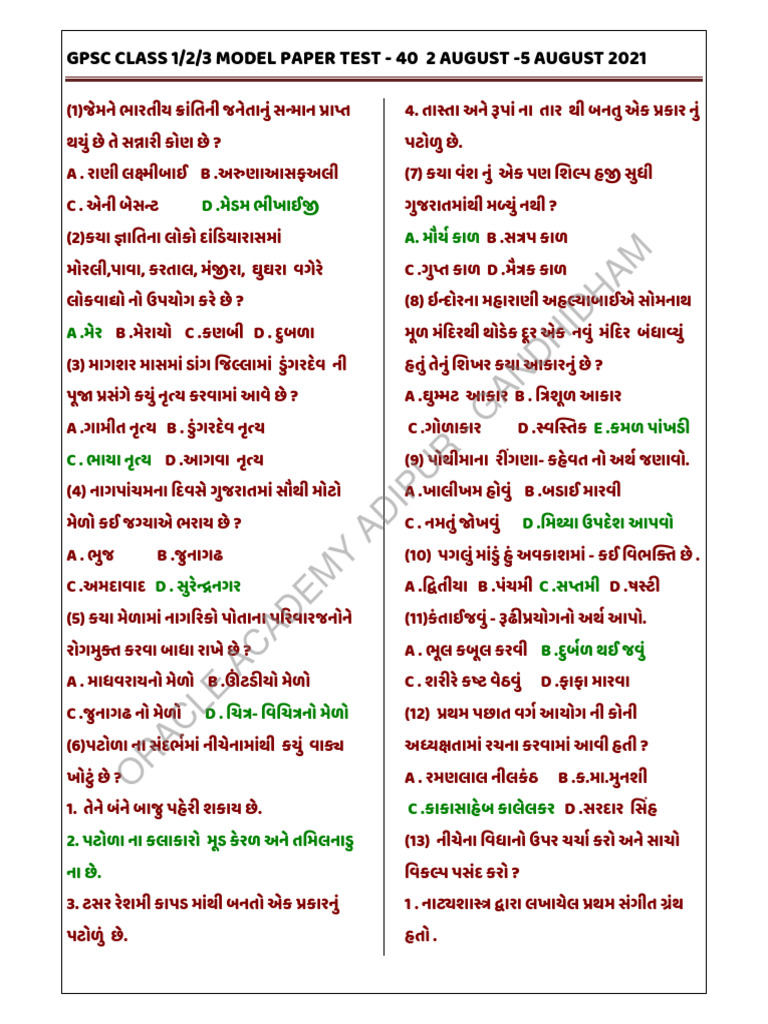 GPSC CLASS 1/2/3 MODEL PAPER TEST - 40 2 AUGUST -5 AUGUST 2021
(1)જેમને ભારતીય ક્રાંતિની જનેતાનું સન્માન પ્રાપ્ત
થયું છે તે સન્નારી કોણ છે ?
A . રાણી લક્ષ્મીબાઈ B .અરુણાઆસફઅલી
C . એની બેસન્ટ D .મેડમ ભીખાઈજી
(2)કયા જ્ઞાતિના લોકો દાંડિયારાસમાં
મોરલી,પાવા, કરતાલ, મંજીરા, ઘુઘરા વગેરે
લોકવાદ્યો નો ઉપયોગ કરે છે ?
A .મેર B .મેરાયો C .કણબી D . દુબળા
(3) માગશર માસમાં ડાંગ જિલ્લામાં ડુંગરદેવ ની
પૂજા પ્રસંગે કયું નૃત્ય કરવામાં આવે છે ?
A .ગામીત નૃત્ય B . ડુંગરદેવ નૃત્ય
C . ભાયા નૃત્ય D .આગવા નૃત્ય
(4) નાગપાંચમના દિવસે ગુજરાતમાં સૌથી મોટો
મેળો કઈ જગ્યાએ ભરાય છે ?
A . ભુજ B .જુનાગઢ
C .અમદાવાદ D . સુરેન્દ્રનગર
(5) કયા મેળામાં નાગરિકો પોતાના પરિવારજનોને
રોગમુક્ત કરવા બાધા રાખે છે ?
A . માધવરાયનો મેળો B .ઊંટડીયો મેળો
C .જુનાગઢ નો મેળો D . ચિત્ર- વિચિત્રનો મેળો
(6)પટોળા ના સંદર્ભમાં નીચેનામાંથી કયું વાક્ય
ખોટું છે ?
1. તેને બંને બાજુ પહેરી શકાય છે.
2. પટોળા ના કલાકારો મૂડ કેરળ અને તમિલનાડુ
ના છે.
3. ટસર રેશમી કાપડ માંથી બનતો એક પ્રકારનું
પટોળું છે.
4. તાસ્તા અને રૂપાં ના તાર થી બનતુ એક પ્રકાર નું
પટોળુ છે.
(7) કયા વંશ નું એક પણ શિલ્પ હજી સુધી
ગુજરાતમાંથી મળ્યું નથી ?
A. મૌર્ય કાળ B .સત્રપ કાળ
C .ગુપ્ત કાળ D .મૈત્રક કાળ
(8) ઇન્દોરના મહારાણી અહલ્યાબાઈએ સોમનાથ
મૂળ મંદિરથી થોડેક દૂર એક નવું મંદિર બંધાવ્યું
હતું તેનું શિખર કયા આકારનું છે ?
A .ઘુમ્મટ આકાર B . ત્રિશૂળ આકાર
C .ગોળાકાર D .સ્વસ્તિક E .કમળ પાંખડી
(9) પોથીમાના રીંગણા- કહેવત નો અર્થ જણાવો.
A .ખાલીખમ હોવું B .બડાઈ મારવી
C . નમતું જોખવું D .મિથ્યા ઉપદેશ આપવો
(10) પગલું માંડું હું અવકાશમાં - કઈ વિભક્તિ છે .
A .દ્વિતીયા B .પંચમી C .સપ્તમી D .ષસ્ટી
(11)કંતાઈજવું - રૂઢીપ્રયોગનો અર્થ આપો.
A . ભૂલ કબૂલ કરવી B .દુર્બળ થઈ જવું
C . શરીરે કષ્ટ વેઠવું D .ફાફા મારવા
(12) પ્રથમ પછાત વર્ગ આયોગ ની કોની
અધ્યક્ષતામાં રચના કરવામાં આવી હતી ?
A . રમણલાલ નીલકંઠ B .ક.મા.મુનશી
C .કાકાસાહેબ કાલેલકર D .સરદાર સિંહ
(13) નીચેના વિધાનો ઉપર ચર્ચા કરો અને સાચો
વિકલ્પ પસંદ કરો ?
1 . નાટ્યશાસ્ત્ર દ્વારા લખાયેલ પ્રથમ સંગીત ગ્રંથ
હતો .
ORACLE ACADEMY ADIPUR GANDHIDHAM